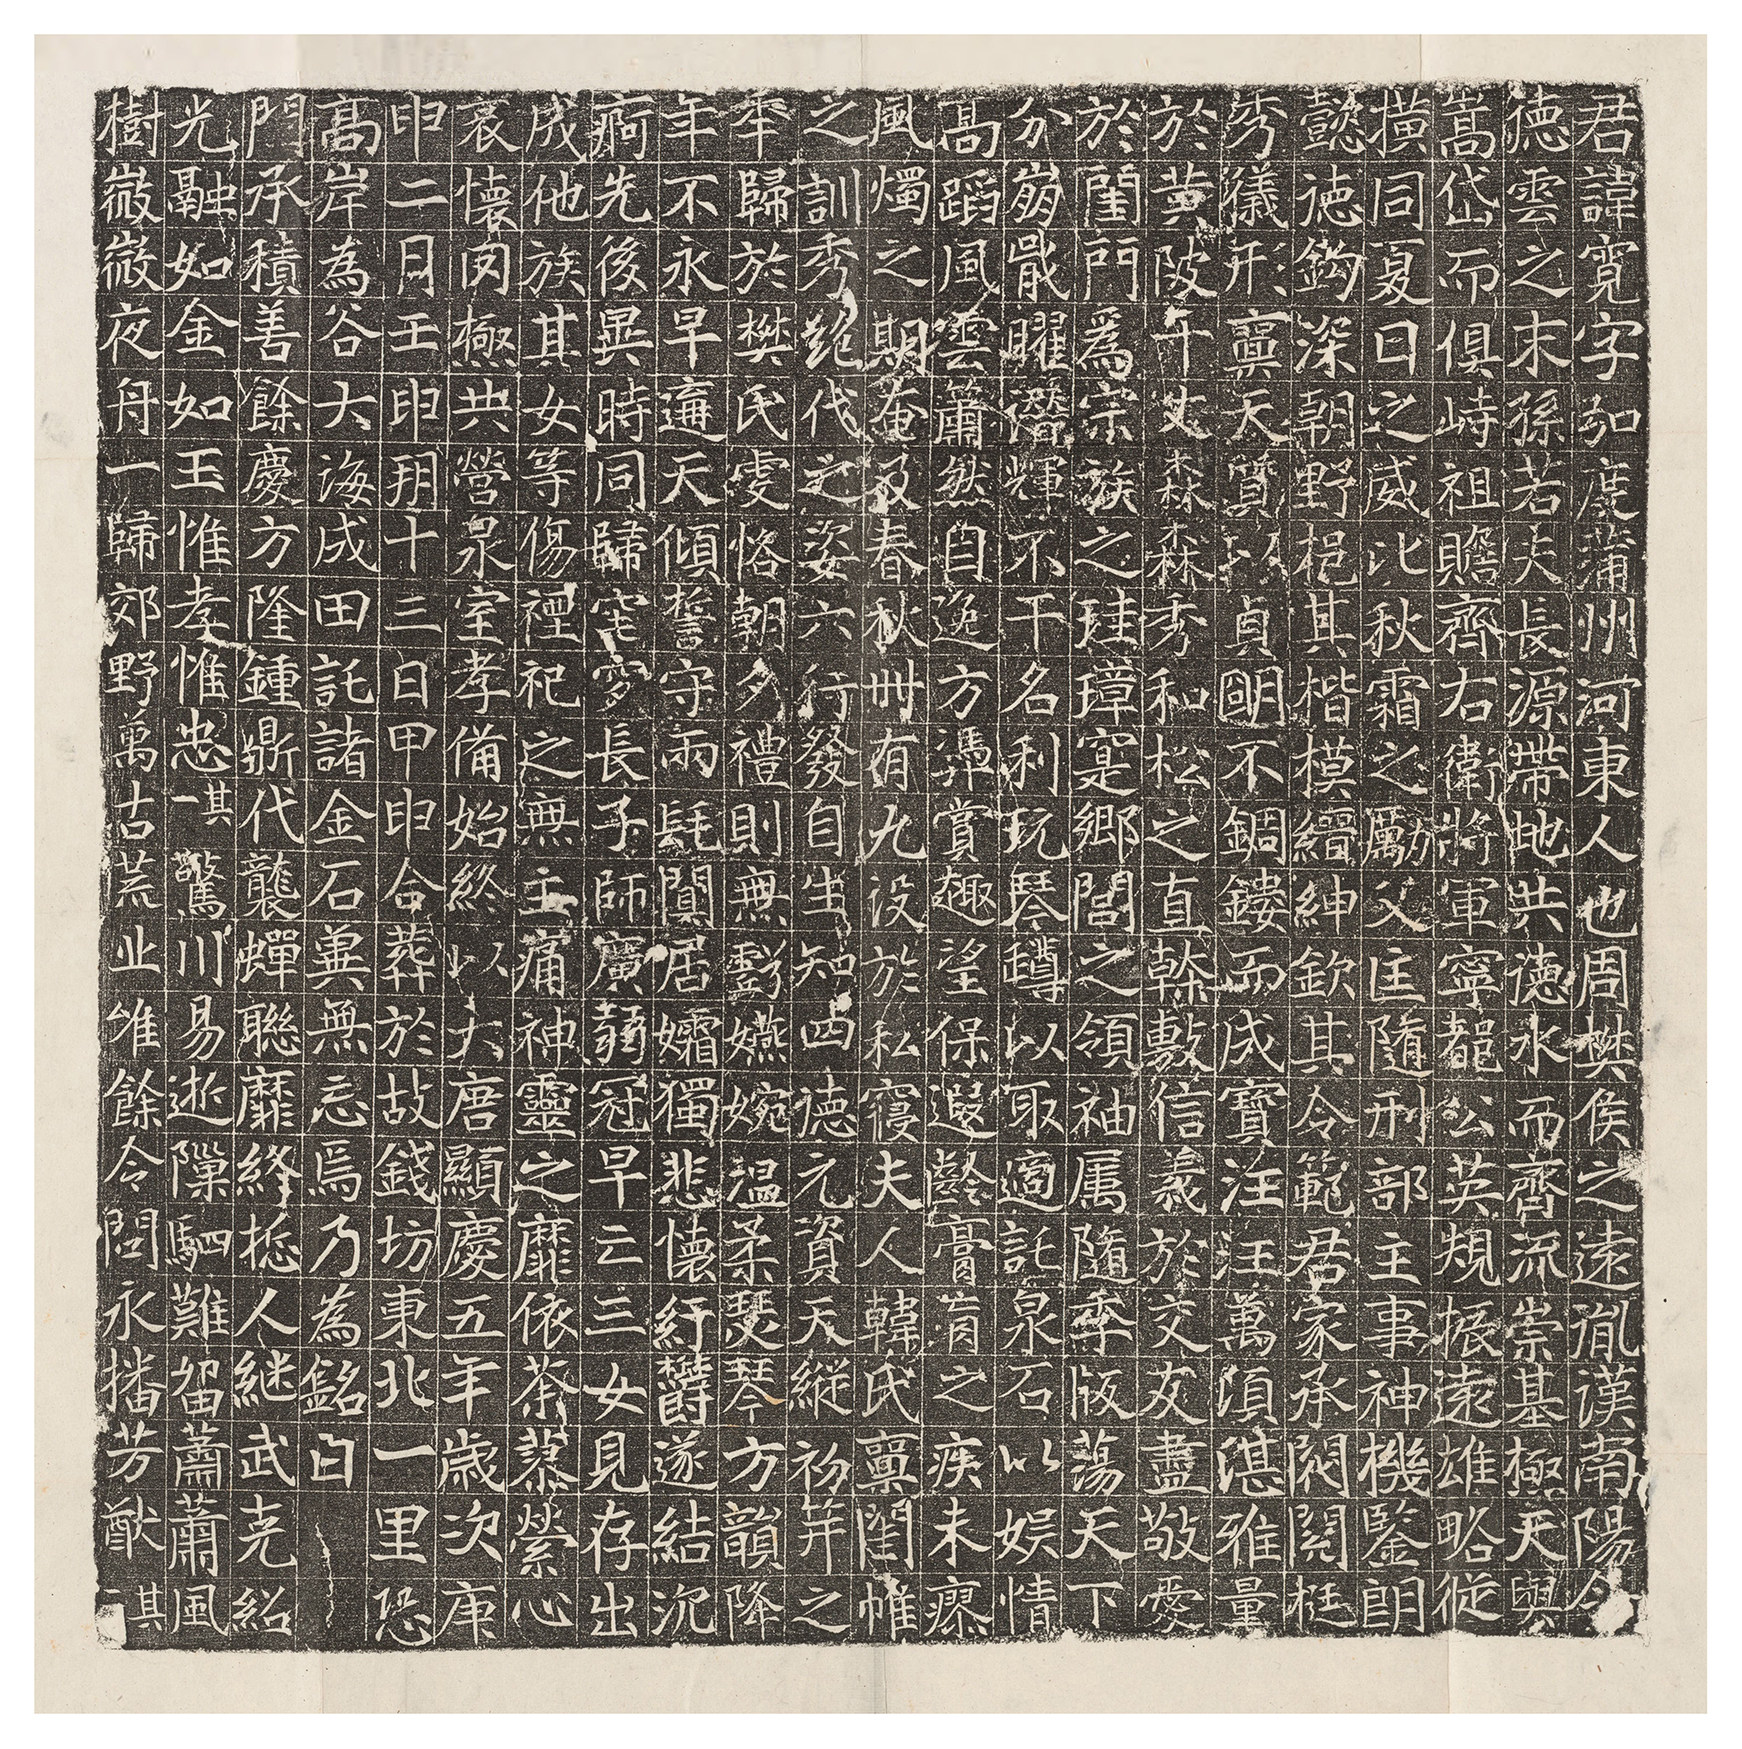 君諱寛字弘度蒲州河東人也周樊侯之遠胤漢南陽令
德雲之末孫若夫長源帶地共德水而齊流崇基極天與
嵩岱而俱峙祖贍齊右衛將軍寧都公英規振遠雄略從
横同夏日之威比秋霜之厲父匡隨刑部主事神機鑒朗
懿德鈎深朝野挹其楷模縉紳欽其令範君家承閥閱挺
秀儀形禀天質以貞明不錮鏤而成寶汪汪萬頃湛雅量
於黄陂千丈森森秀和松之直幹敷信義於交友盡敬愛
於閨門爲宗族之珪璋寔鄉閭之領袖属隨季版蕩天下
分崩戢曜潛輝不干名利玩琴罇以取適託泉石以娱情
高蹈風雲蕭然自逸方憑賞趣望保遐齡膏肓之疾未瘳
風燭之期奄及春秋卌有九没於私寢夫人韓氏禀閨帷
之訓秀絶代之姿六行發自生知四德元資天縱初笄之
年歸於樊氏虔恪朝夕禮則無虧嬿婉温柔瑟琴方韻降
年不永早遘天傾誓守兩髦闃居孀獨悲懷紆欝遂結沉
痾先後異時同歸窀穸長子師廣蒻冠早亡三女見存出
成他族其女等傷禋祀之無主痛神靈之靡依荼蓼縈心
哀懷罔極共營泉室孝備始終以大唐顯慶五年歲次庚
申二月壬申朔十三日甲申合葬於故錢坊東北一里恐
高岸為谷大海成田託諸金石冀無忘焉乃為銘曰
門承積善餘慶方隆鍾鼎代襲蟬聯靡終挺人継武克紹
光融如金如玉惟孝惟忠其一驚川易逝隟駟難留蕭蕭風
樹㣲㣲夜舟一歸郊野萬古荒丘唯餘令問永播芳猷其